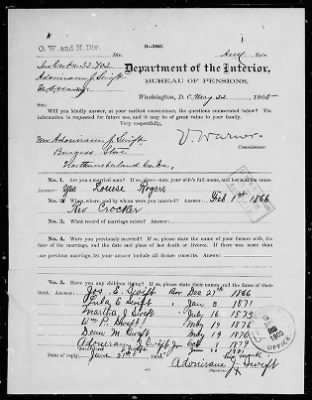 O. W. and N. Div.
Department of the Interior,
BUREAU OF PENSIONS,
Adoniram J. Swift
Washington, D. C., May 22, 1905
SIR:
Will you kindly answer, at your earliest convenience, the questions enumerated below? The
information is requested for future use, and it may be of great value to your family.
Very respectfully,
V. Warner
Commissioner.
Mr Adoniram J. Swift
Burgess Store
Northumberland Co Va,
No. 1. Are you a married man? If so, please state your wife's full name, and her maiden name.
Answer: yes Louise Rogers
No. 2. When, where, and by whom were you married? Answer: Feb 1st 1866
Rev Crocker
No. 3. What record of marriage exists? Answer:
No. 4. Were you previously married? If so, please state the name of your former wife,
the date of marriage, and the date and place of her death or divorce. If there was more
than one previous marriage, let your answer include all former wives. Answer:
No. 5. Have you any children living? If so, please state their names and the dates of their
birth. Answer: Jos. E. Swift Dec 27th 1866
Lula E Swift Jan 3 1871
Martha J Swift July 16 1873
Wm P. Swift May 19 1876
Dean M. Swift May 19 1876
Adoniram J Swift Jr
Date of reply, June
Adoniram J. Swift
OFFICE